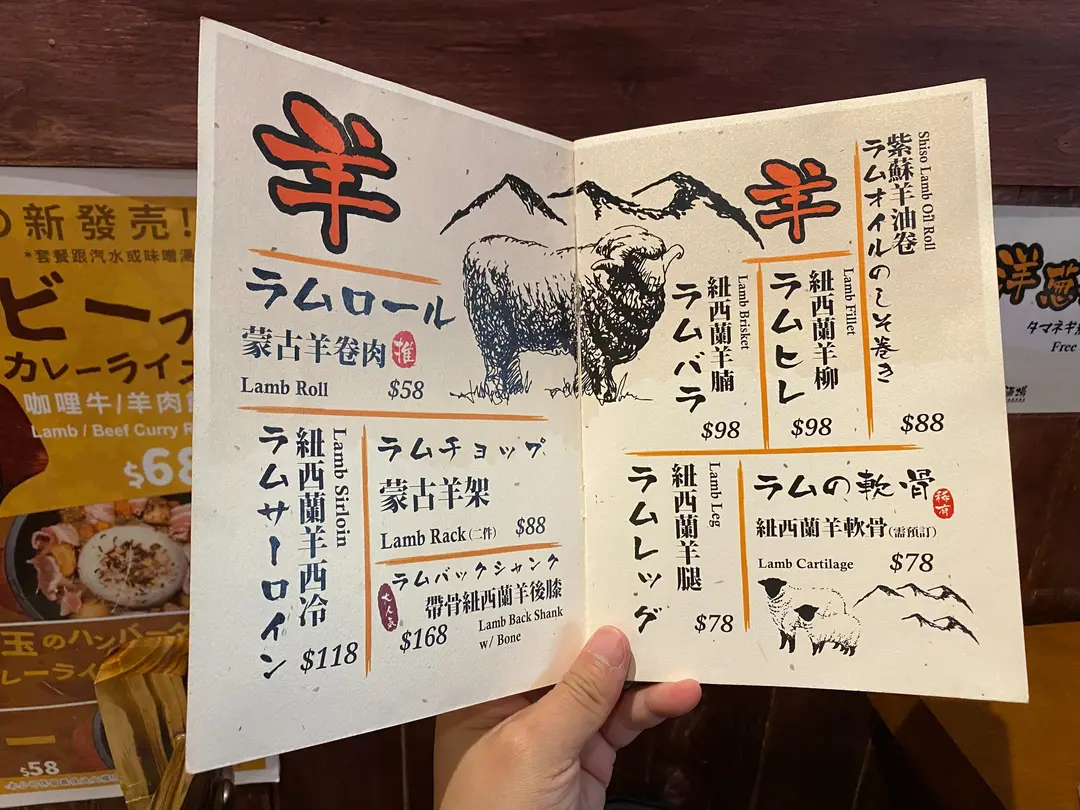 羊
ラムロール
蒙古羊卷肉 推
Lamb Roll $58
Lamb Sirloin
紐西蘭羊西冷
ラムサーロイン
$118
ラムチョップ
蒙古羊架
Lamb Rack (二件) $88
ラムバックシャンク
大人気
帶骨紐西蘭羊後膝
Lamb Back Shank
w/ Bone
$168
羊
Shiso Lamb Oil Roll
紫蘇羊油卷
ラムオイルのしそ巻き
$88
Lamb Fillet
紐西蘭羊柳
ラムヒレ
$98
Lamb Brisket
紐西蘭羊腩
ラムバラ
$98
Lamb Leg
紐西蘭羊腿
ラムレッグ
$78
ラムの軟骨
稀有
紐西蘭羊軟骨(需預訂)
Lamb Cartilage $78
の新發売!
*套餐跟汽水或味噌湯
ビーフ
カレーライス
咖哩牛/羊肉
Lamb / Beef Curry R
$68
玉のハンバーグ
レーライ
$58
洋葱
タマネギ
Free
酒場